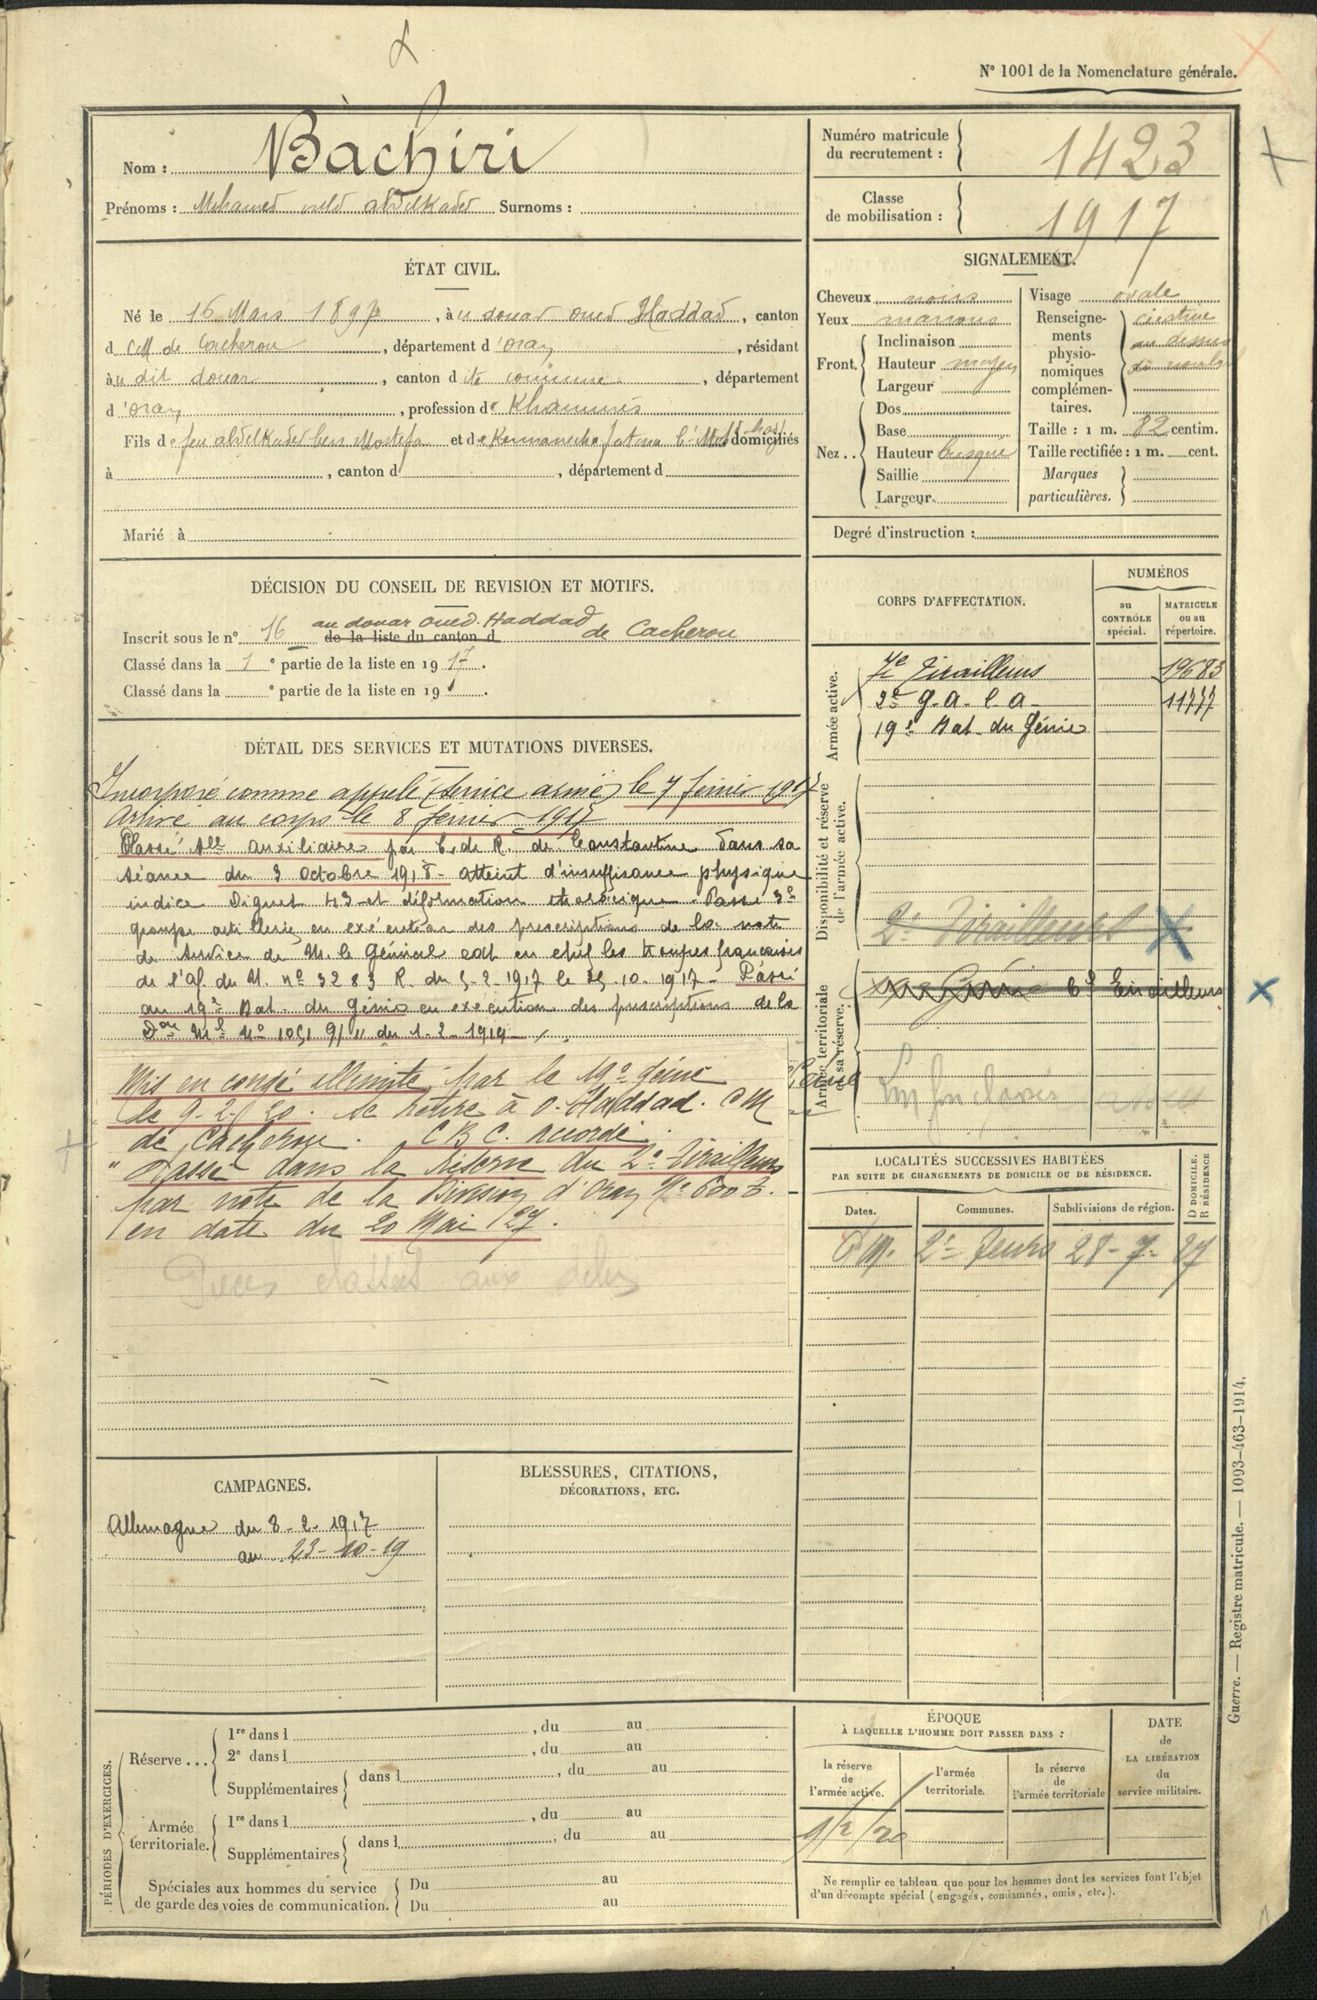 N° 1001 de la Nomenclature générale.
Nom : Bachiri
Prénoms : Mohamed ould abdelkader Surnoms :
Numéro matricule du recrutement : 1423
Classe de mobilisation : 1917
ÉTAT CIVIL.
Né le 16 Mars 1897, à u douar oued Haddad, canton
d CM de Cacherou, département d'oran, résidant
à u dit douar, canton dite commune, département
d'oran, profession de Khammès
Fils de feu abdelkader ben Mostefa et de fatma domiciliés
à , canton d , département d
Marié à
SIGNALEMENT.
Cheveux noirs
Yeux marrons
Front. Inclinaison
Hauteur moyen
Largeur
Nez .. Dos
Base
Hauteur busqué
Saillie
Largeur
Visage ovale
Renseigne-
ments
physio-
nomiques
complémen-
taires.
au dessus
Taille : 1 m. 82 centim.
Taille rectifiée : 1 m. cent.
Marques
particulières.
Degré d'instruction :
DÉCISION DU CONSEIL DE REVISION ET MOTIFS.
au douar oued Haddad
Inscrit sous le n° 16 de la liste du canton d de Cacherou
Classé dans la 1e partie de la liste en 1917.
Classé dans la e partie de la liste en 191 .
CORPS D'AFFECTATION.
NUMÉROS
au CONTRÔLE spécial.
MATRICULE ou au répertoire.
Armée active.
7e Tirailleurs 19683
2e g.a.e a 11777
19e Bat. du Génie
Disponibilité et réserve de l'armée active.
2e Tirailleurs
Armée territoriale et sa réserve.
6e Tirailleurs
DÉTAIL DES SERVICES ET MUTATIONS DIVERSES.
Incorporé comme appelé (service armé) le 7 février 1917
Arrivé au corps le 8 février 1917
Classé Sce auxiliaire par C. de R. de Constantine dans sa
séance du 3 octobre 1918 - atteint d'insuffisance physique
indice Pignet 43 et déformation thoracique - Passé 2e
groupe artillerie en exécution des prescriptions de la note
de service de M. le Général Cdt en chef les troupes françaises
de l'Af. du N. n° 3283 R. du 5-2-1917 le 25-10-1917 - Passé
au 19e Bat. du Génie en exécution des prescriptions de la
9/11 du 1-2-1919
Mis en congé illimité par le 19e Génie
le 9-2-20. Se retire à O. Haddad. CM
de Cacherou. C B C. accordé.
Passé dans la Réserve du 2e Tirailleurs
par note de la Division d'Oran N° 600 3.
en date du 20 Mai 27.
Pièces classées aux
LOCALITÉS SUCCESSIVES HABITÉES
PAR SUITE DE CHANGEMENTS DE DOMICILE OU DE RÉSIDENCE.
Dates. Communes. Subdivisions de région. D DOMICILE. R RÉSIDENCE
28-7-27
CAMPAGNES.
Allemagne du 8-2-1917
au 23-10-19
BLESSURES, CITATIONS,
DÉCORATIONS, ETC.
PÉRIODES D'EXERCICES.
Réserve ...
1re dans l , du au
2e dans l , du au
Supplémentaires dans l , du au
Armée territoriale.
1re dans l , du au
Supplémentaires dans l , du au
Spéciales aux hommes du service
de garde des voies de communication.
Du au
Du au
ÉPOQUE
À LAQUELLE L'HOMME DOIT PASSER DANS :
la réserve de l'armée active.
l'armée territoriale.
la réserve de l'armée territoriale
DATE de LA LIBÉRATION du service militaire.
9/2/20
Ne remplir ce tableau que pour les hommes dont les services font l'objet
d'un décompte spécial (engagés, condamnés, omis, etc.).
Guerre. — Registre matricule. — 1093-463-1914.